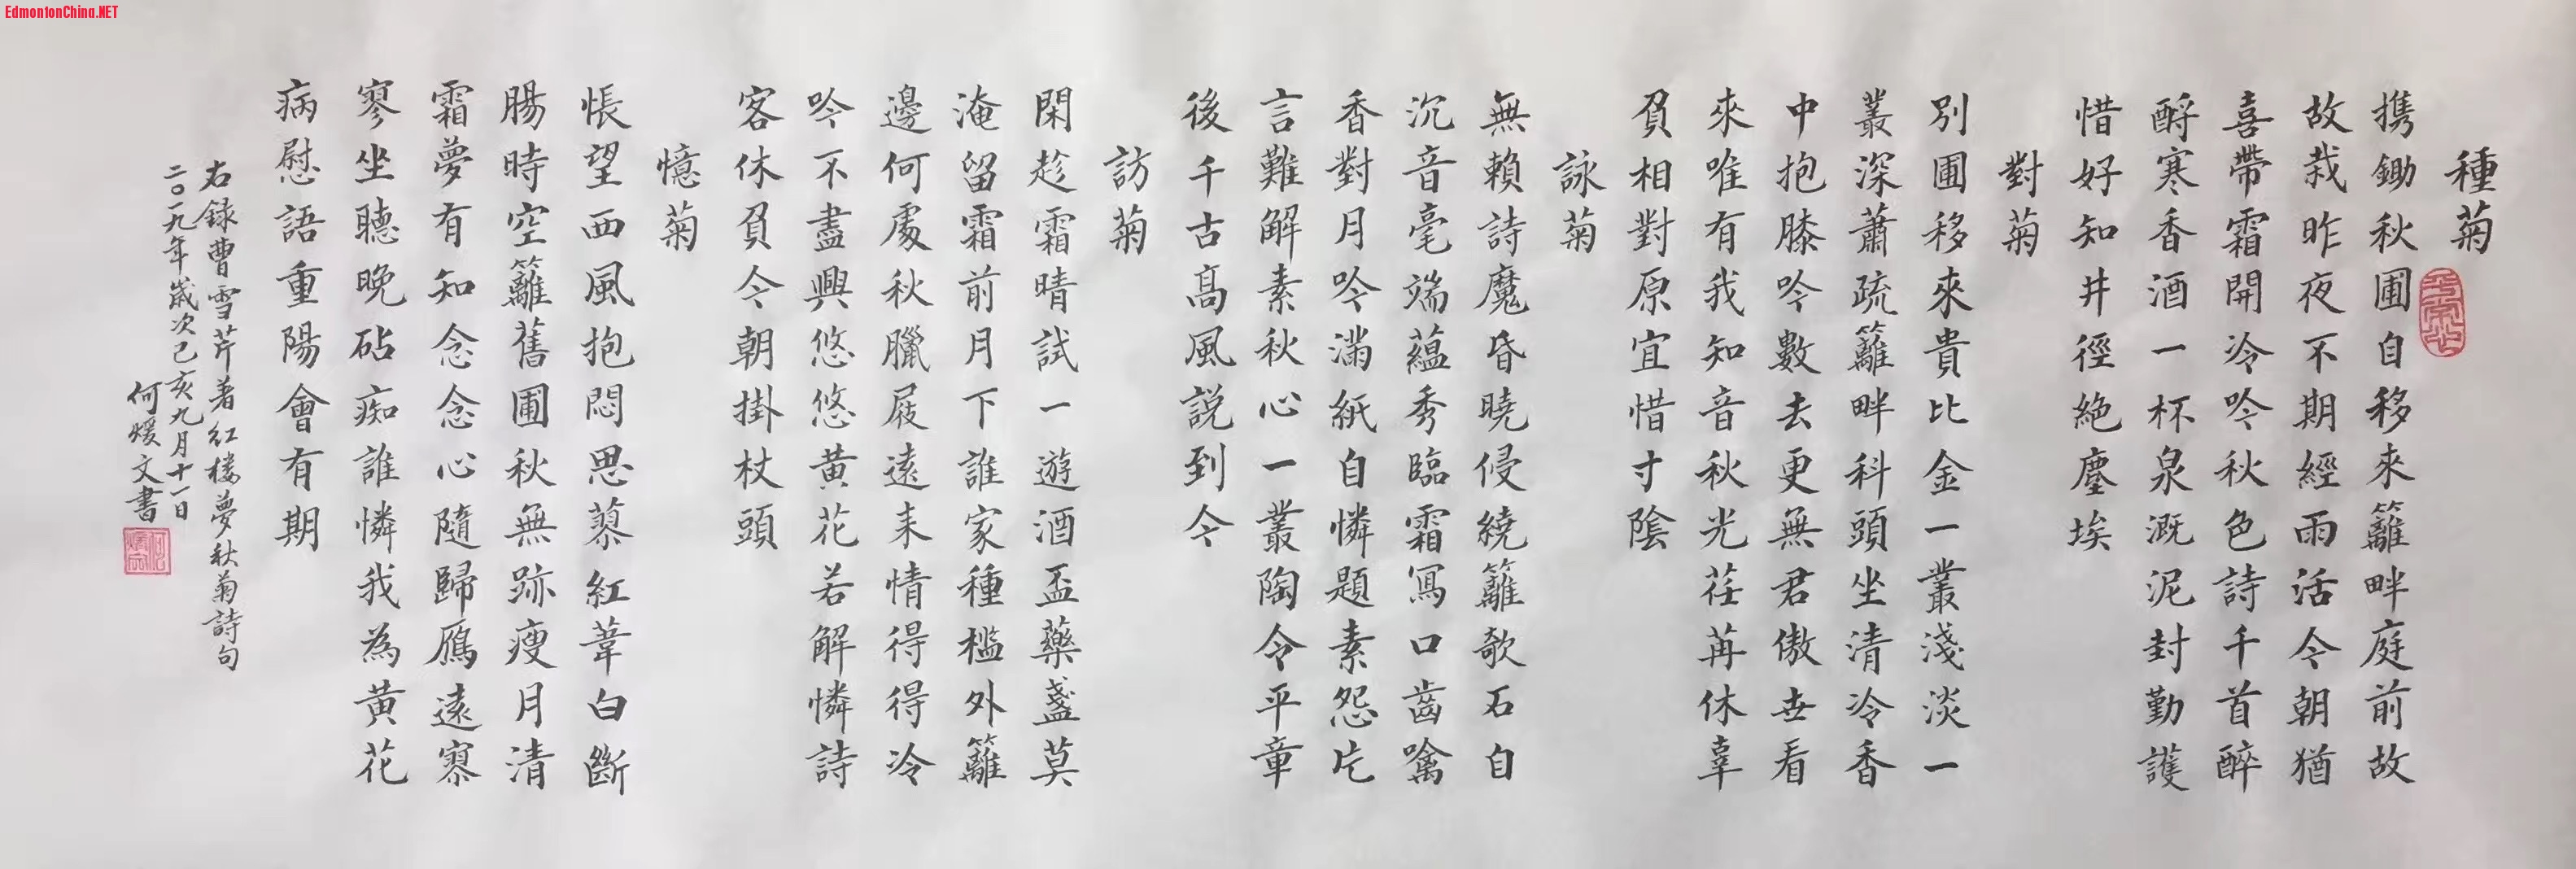 EdmontonChina.NET
種菊
携鋤秋圃自移來籬畔庭前故
故栽昨夜不期經雨活今朝猶
喜帶霜開冷吟秋色詩千首醉
酹寒香酒一杯泉溉泥封勤護
惜好知井徑絕塵埃
對菊
別圃移來貴比金一叢淺淡一
叢深蕭疏籬畔科頭坐清冷香
中抱膝吟數去更無君傲世看
來唯有我知音秋光荏苒休辜
負相對原宜惜寸陰
詠菊
無賴詩魔昏曉侵繞籬欹石自
沉音毫端蘊秀臨霜寫口齒噙
香對月吟滿紙自憐題素怨片
言難解素秋心一叢陶令平章
後千古高風説到今
訪菊
閑趁霜晴試一遊酒盃藥盞莫
淹留霜前月下誰家種檻外籬
邊何處秋臘屐遠来情得得冷
吟不盡興悠悠黃花若解憐詩
客休負今朝掛杖頭
憶菊
悵望西風抱悶思蓼紅葦白斷
腸時空籬舊圃秋無跡瘦月清
霜夢有知念念心隨歸雁遠寥
寥坐聽晚砧痴誰憐我為黃花
病慰語重陽會有期
右録曹雪芹著紅樓夢秋菊詩句
二〇一九年歲次己亥九月十一日
何媛文書